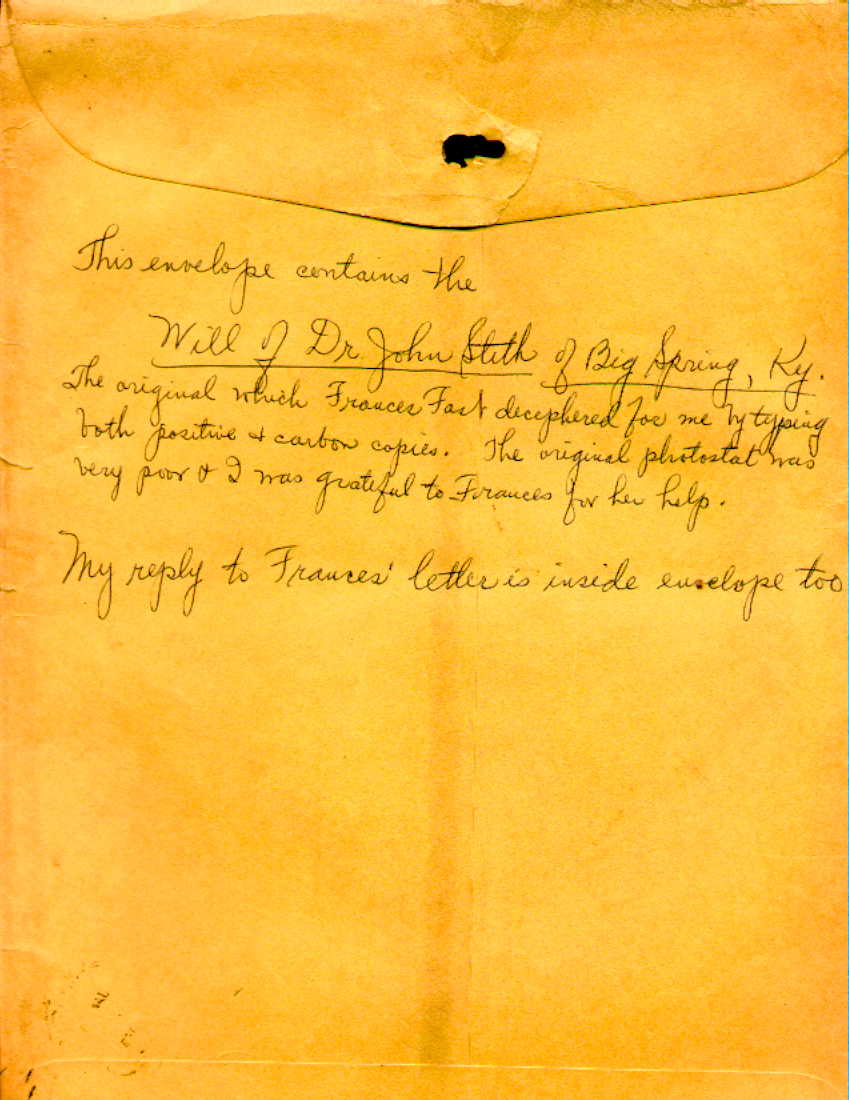 This envelope contains the
Will of Dr. John Stith of Big Spring, Ky.
The original which Frances Fast deciphered for me by typing
both positive & carbon copies. The original photostat was
very poor & I was grateful to Frances for her help.
My reply to Frances' letter is inside envelope too